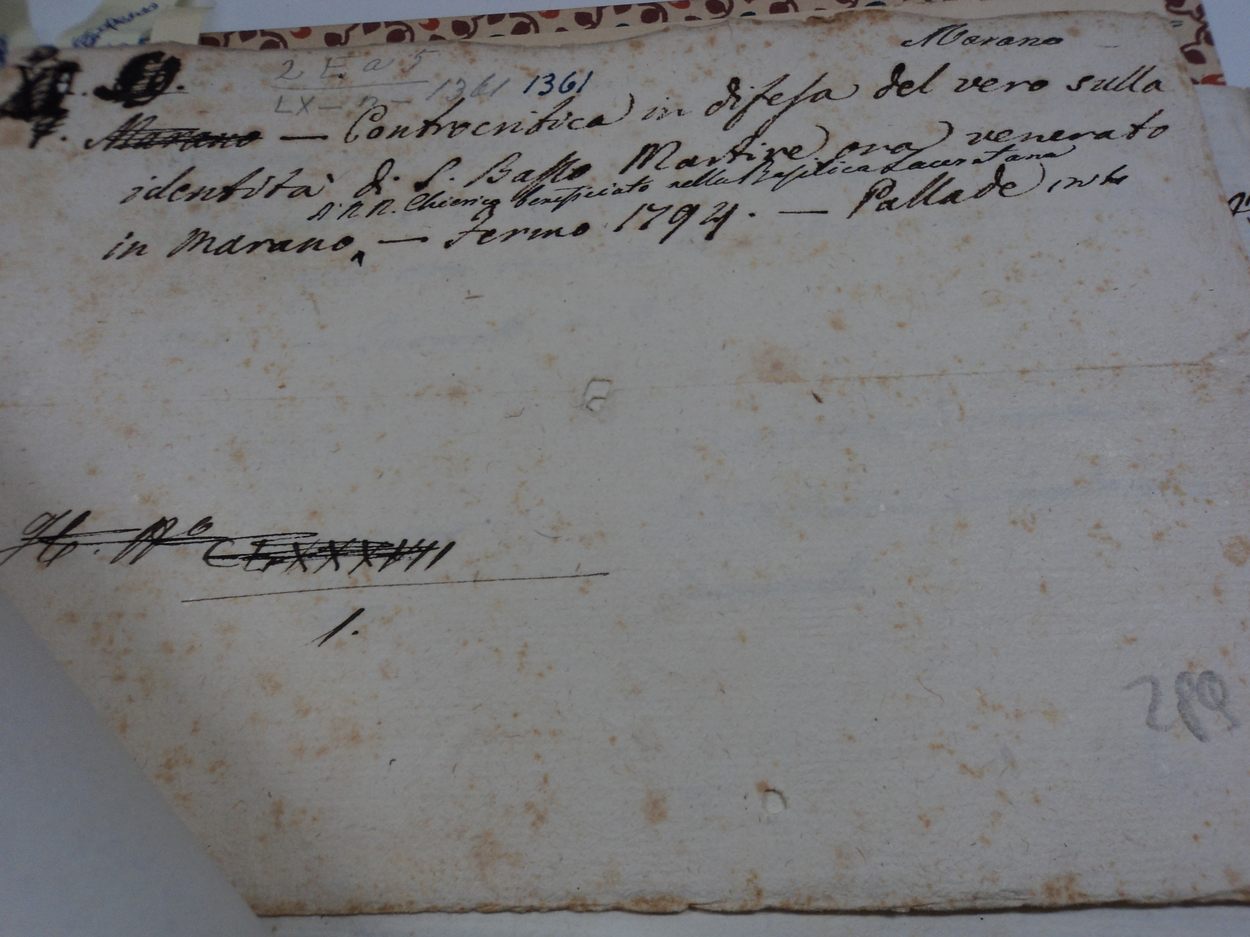 Marano
2 E a 5
LX - n - 1361 1361
7. Marano — Controcritica in difesa del vero sulla
identità di S. Basso Martire ora venerato
di N. N. Chierico beneficiato nella Basilica Lauretana
in Marano — Fermo 1794. — Pallade in
H. N.o CLXXXVII
1.
289